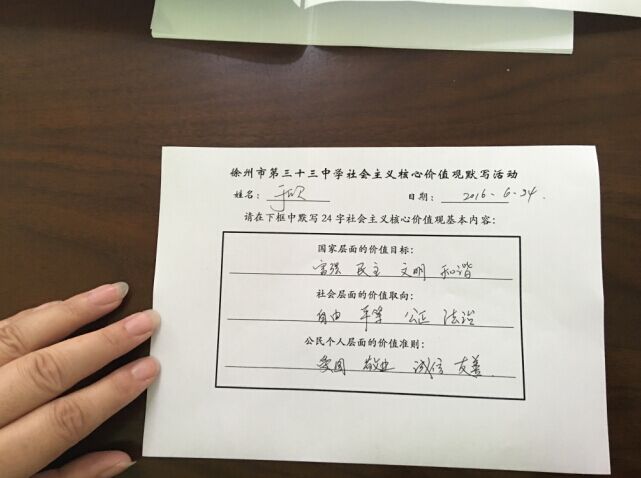 徐州市第三十三中学社会主义核心价值观默写活动
姓名：于欣 日期：2016-6-24.
请在下框中默写24字社会主义核心价值观基本内容：
国家层面的价值目标：
富强 民主 文明 和谐
社会层面的价值取向：
自由 平等 公正 法治
公民个人层面的价值准则：
爱国 敬业 诚信 友善